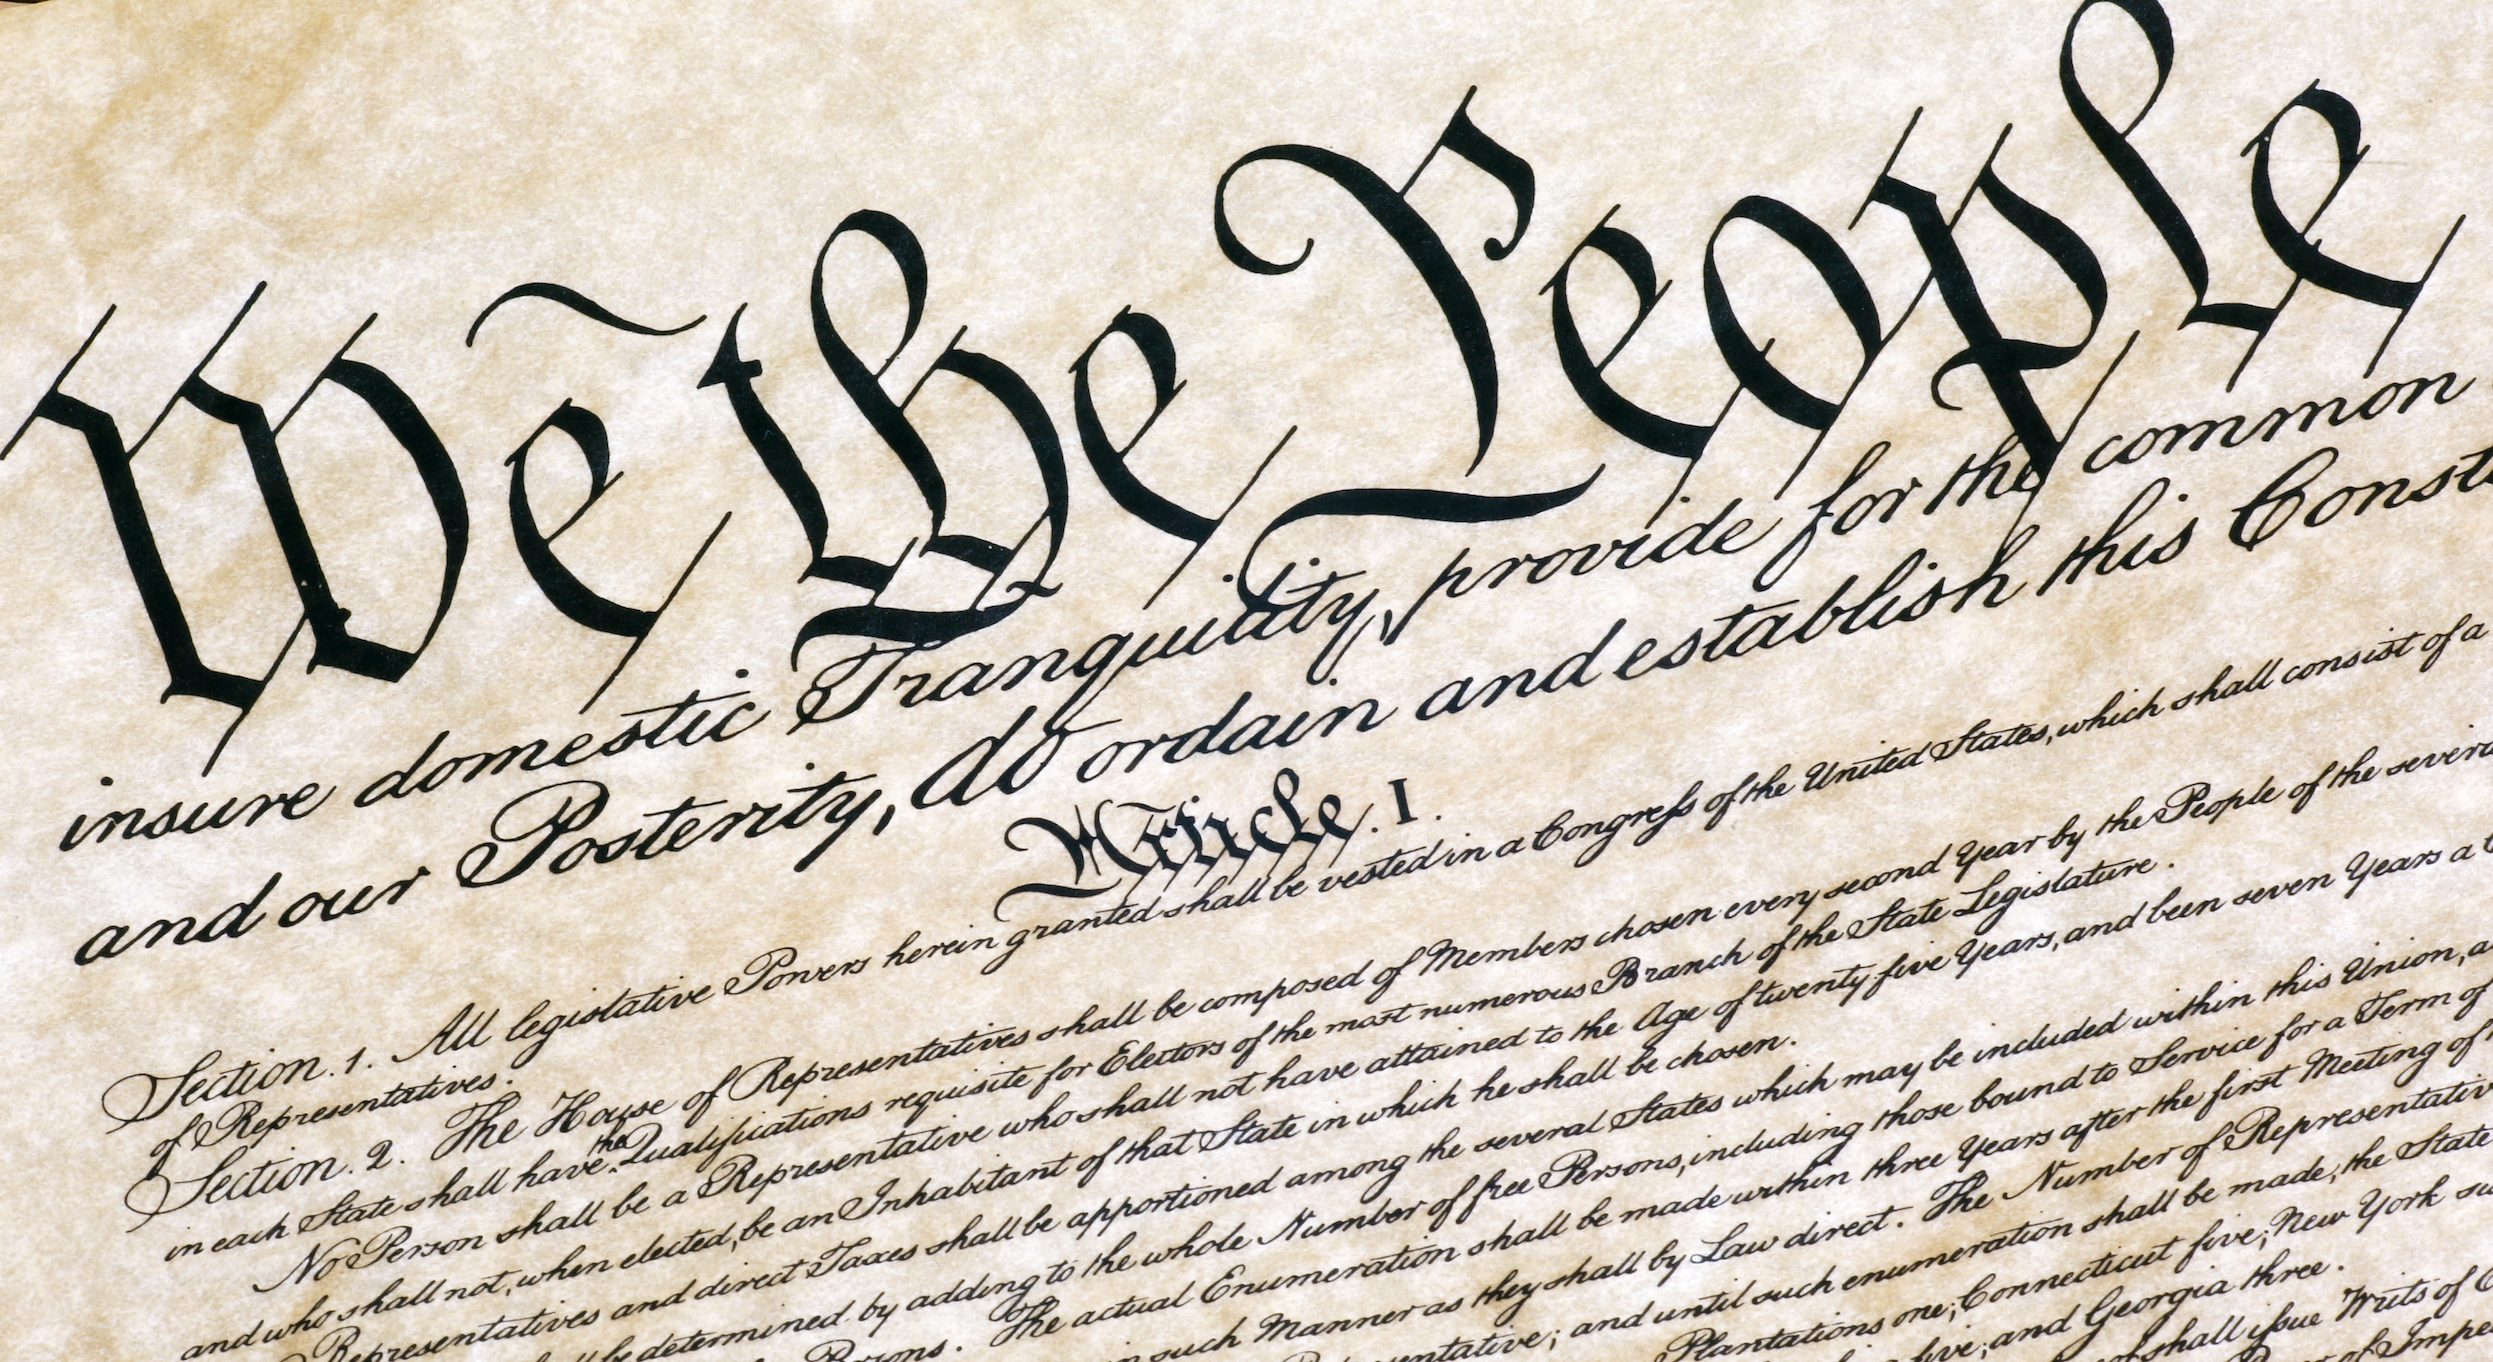 We the People
insure domestic Tranquility, provide for the common
and our Posterity, do ordain and establish this
Article. I.
Section. 1. All legislative Powers herein granted shall be vested in a Congress of the United States, which shall consist of a
of Representatives.
Section. 2. The House of Representatives shall be composed of Members chosen every second Year by the People of the
in each State shall have the Qualifications requisite for Electors of the most numerous Branch of the State Legislature.
No Person shall be a Representative who shall not have attained to the Age of twenty five Years, and been seven Years a
and who shall not, when elected, be an Inhabitant of that State in which he shall be chosen.
Representatives and direct Taxes shall be apportioned among the several States which may be included within this Union,
be determined by adding to the whole Number of free Persons, including those bound to Service for a Term of
Persons. The actual Enumeration shall be made within three Years after the first Meeting of
in such Manner as they shall by Law direct. The Number of
and until such enumeration shall be made, the State
Plantations one, Connecticut five, New York
five, and Georgia three.
shall issue Writs of
of